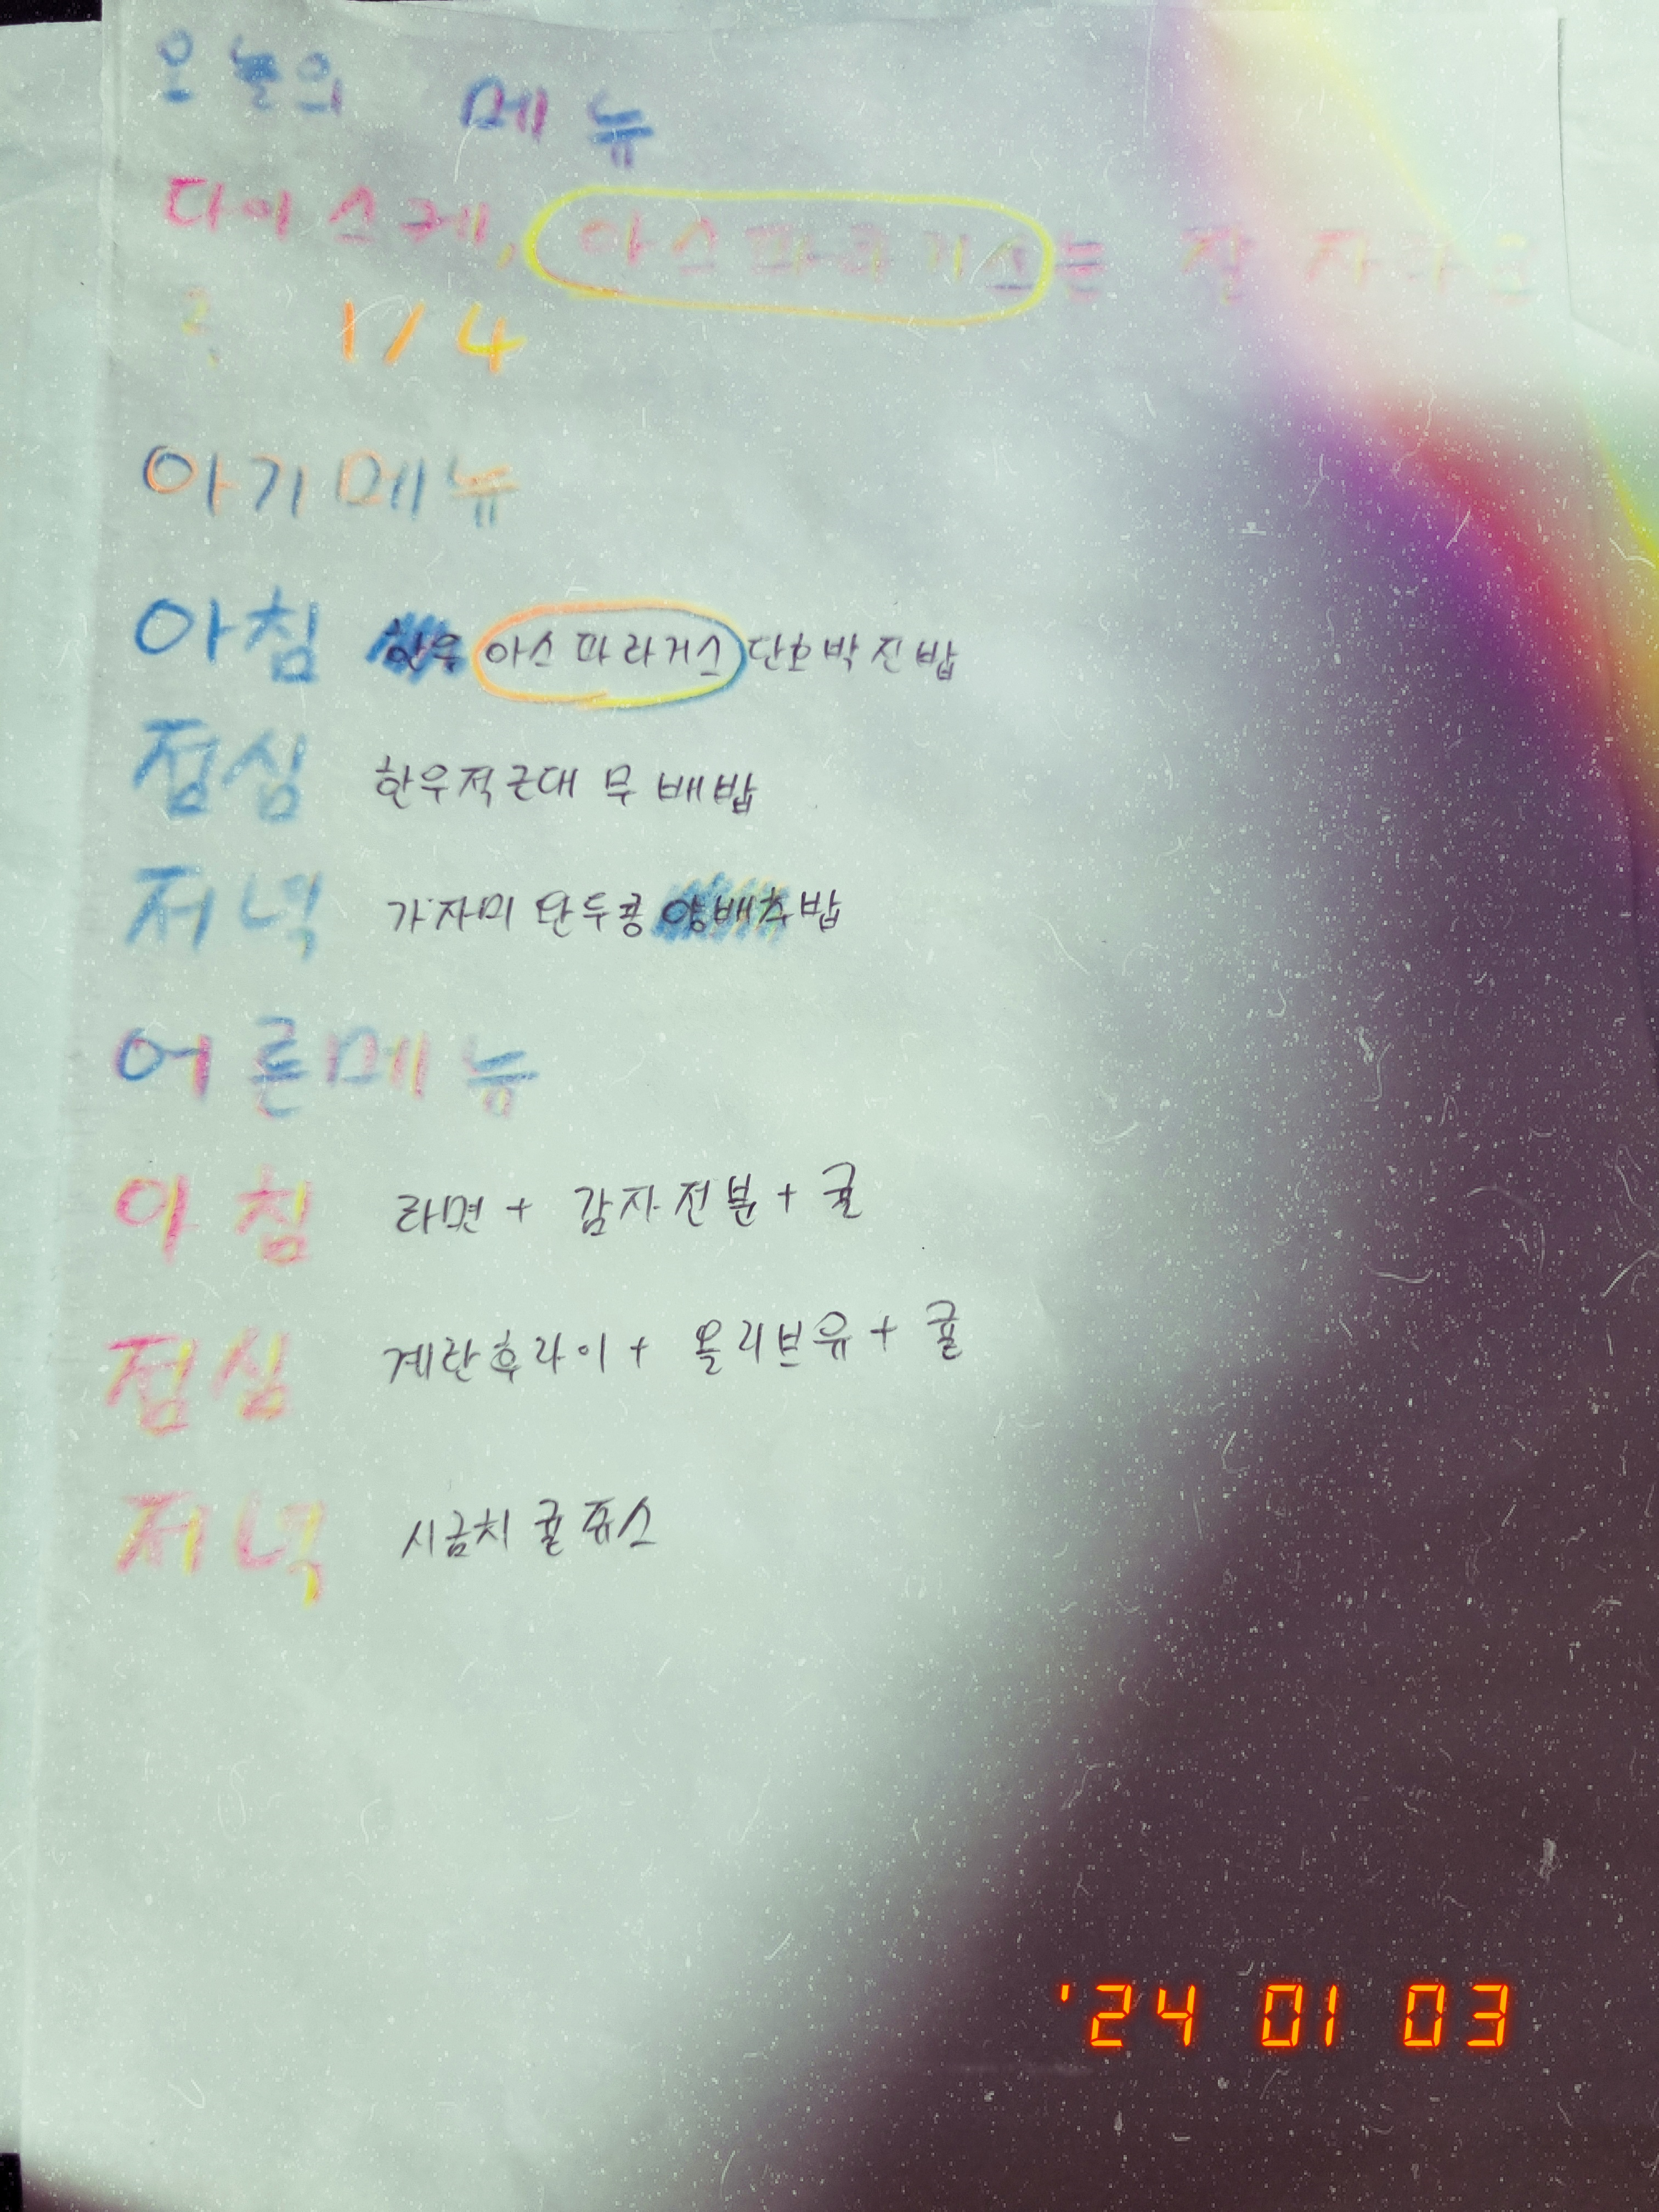 오늘의 메뉴
다이스케, 아스파라거스는 잘 자라고
? 1/4
아기메뉴
아침 한우 아스파라거스 단호박진밥
점심 한우적근대 무 배밥
저녁 가자미 완두콩 양배추밥
어른메뉴
아침 라면 + 감자전분 + 귤
점심 계란후라이 + 올리브유 + 귤
저녁 시금치 귤쥬스
'24 01 03